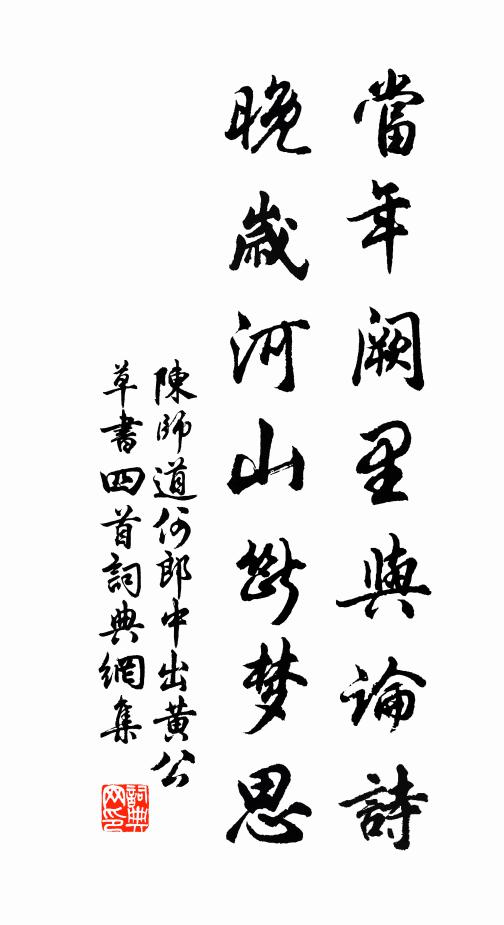 當年闕里與論詩
晚歲河山斷梦思
陳師道何郎中出黄公
草書四首詞典網集
詞典网印